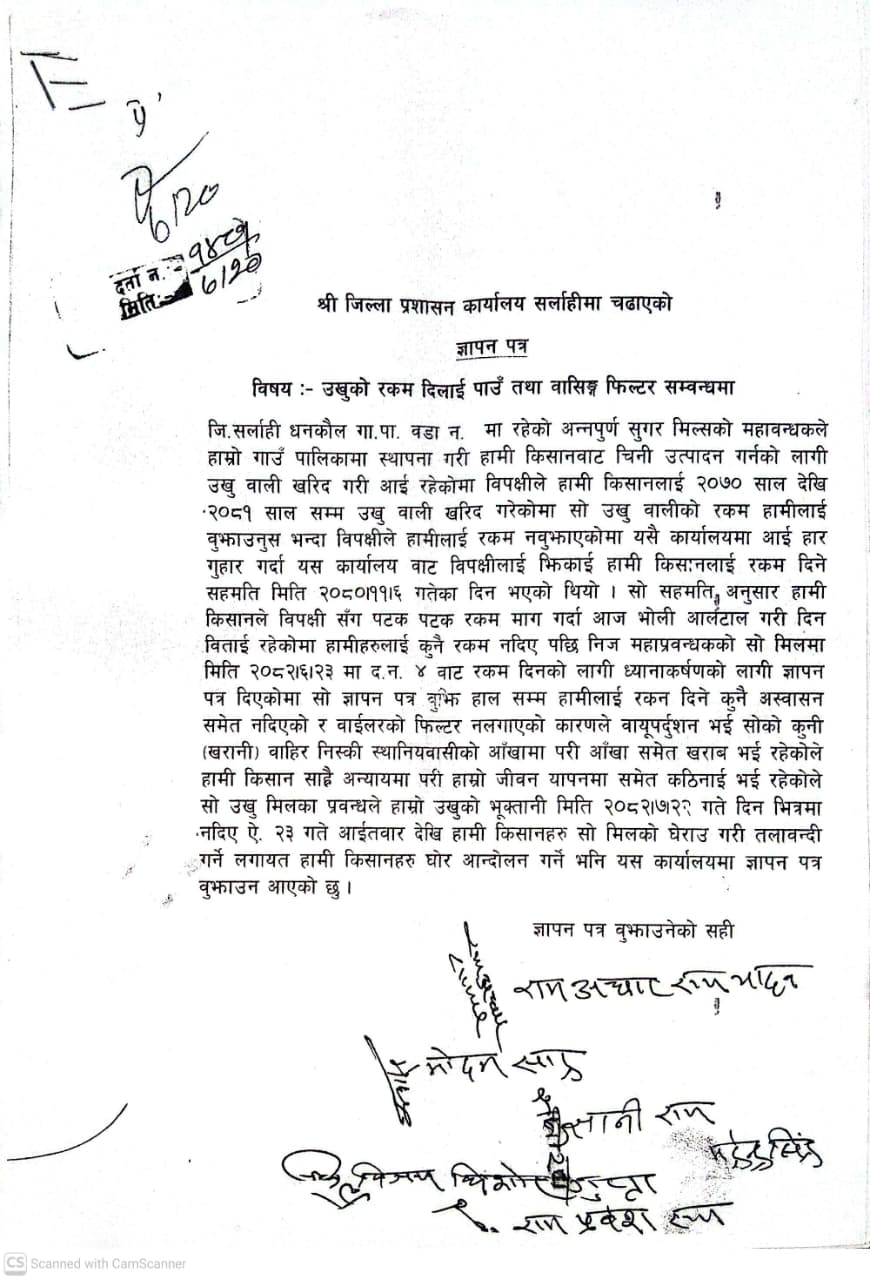 दर्ता न. :- १४८७
मिति:- ७/२०
श्री जिल्ला प्रशासन कार्यालय सर्लाहीमा चढाएको
ज्ञापन पत्र
विषय :- उखुको रकम दिलाई पाउँ तथा वासिङ्ग फिल्टर सम्वन्धमा
जि.सर्लाही धनकौल गा.पा. वडा न. मा रहेको अन्नपुर्ण सुगर मिल्सको महावन्धकले
हाम्रो गाउँ पालिकामा स्थापना गरी हामी किसानवाट चिनी उत्पादन गर्नको लागी
उखु वाली खरिद गरी आई रहेकोमा विपक्षीले हामी किसानलाई २०७० साल देखि
२०८१ साल सम्म उखु वाली खरिद गरेकोमा सो उखु वालीको रकम हामीलाई
वुझाउनुस भन्दा विपक्षीले हामीलाई रकम नवुझाएकोमा यसै कार्यालयमा आई हार
गुहार गर्दा यस कार्यालय वाट विपक्षीलाई झिकाई हामी किसानलाई रकम दिने
सहमति मिति २०८०।११।६ गतेका दिन भएको थियो । सो सहमति अनुसार हामी
किसानले विपक्षी सँग पटक पटक रकम माग गर्दा आज भोली आलटाल गरी दिन
विताई रहेकोमा हामीहरुलाई कुनै रकम नदिए पछि निज महाप्रवन्धकको सो मिलमा
मिति २०८२।६।२३ मा द.न. ४ वाट रकम दिनको लागी ध्यानाकर्षणको लागी ज्ञापन
पत्र दिएकोमा सो ज्ञापन पत्र वुझि हाल सम्म हामीलाई रकन दिने कुनै अस्वासन
समेत नदिएको र वाईलरको फिल्टर नलगाएको कारणले वायूपर्दुशन भई सोको कुनी
(खरानी) वाहिर निस्की स्थानियवासीको आँखामा परी आँखा समेत खराब भई रहेकोले
हामी किसान साह्रै अन्यायमा परी हाम्रो जीवन यापनमा समेत कठिनाई भई रहेकोले
सो उखु मिलका प्रवन्धले हाम्रो उखुको भूक्तानी मिति २०८२।७।२२ गते दिन भित्रमा
नदिए ऐ. २३ गते आईतवार देखि हामी किसानहरु सो मिलको घेराउ गरी तलावन्दी
गर्ने लगायत हामी किसानहरु घोर आन्दोलन गर्ने भनि यस कार्यालयमा ज्ञापन पत्र
वुझाउन आएको छु ।
ज्ञापन पत्र वुझाउनेको सही
राम
साह
राम
गुप्ता
राम प्रवेश राम
CS Scanned with CamScanner